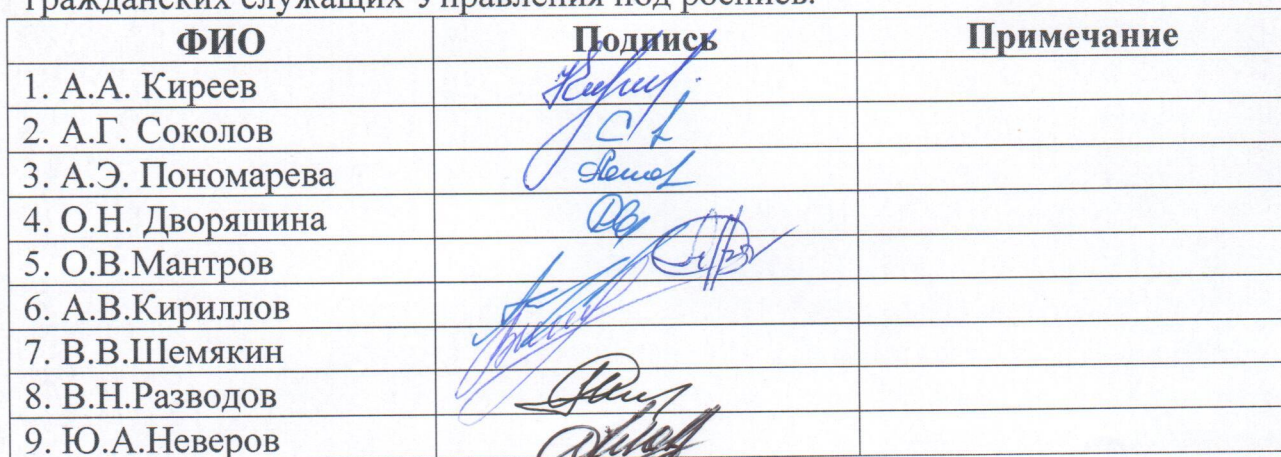 гражданских служащих Управления под роспись.
ФИО Подпись Примечание
1. А.А. Киреев
2. А.Г. Соколов
3. А.Э. Пономарева
4. О.Н. Дворяшина
5. О.В.Мантров
6. А.В.Кириллов
7. В.В.Шемякин
8. В.Н.Разводов
9. Ю.А.Неверов